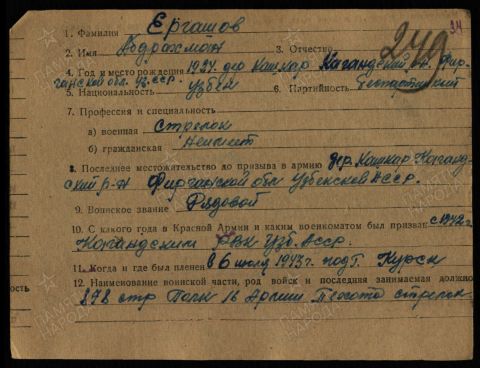 1. Фамилия Ергашов
34
2. Имя Абдрахман 3. Отчество
249
4. Год и место рождения 1924. дер Кашкар Кагандский р-н. Фир-
ганской обл. Уз. ССР.
5. Национальность Узбек 6. Партийность Беспартийный
7. Профессия и специальность
а) военная Стрелок
б) гражданская
8. Последнее местожительство до призыва в армию дер. Кашкар Каганд-
ский р-н Фирганской обл Узбекской ССР.
9. Воинское звание Рядовой
10. С какого года в Красной Армии и каким военкоматом был призван с 1942 г.
Кагандским РВК Узб. ССР.
11. Когда и где был пленен в 6 июля 1943 г. под г. Курск
12. Наименование воинской части, род войск и последняя занимаемая должно
ность
878 стр Полк 16 Армии. Пехота стрелок
ПАМЯТЬ НАРОДА